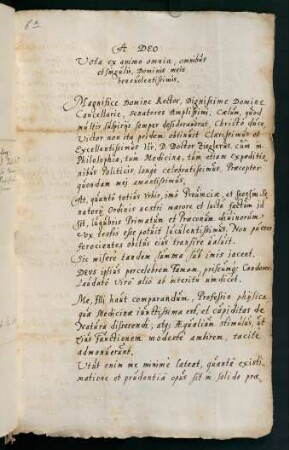 A DEO
Vota ex animo omnia, omnibus
et singulis, Dominis meis
benevolentissimis.
Magnifice Domine Rector, Dignissime Domine
Cancellarie, Senatores Amplissimi, Cælum, quod
multis suspirijs semper desiderabat, Christo duce
Victor non ita pridem obtinuit Clarissimus et
Excellentissimus Vir, D. Doctor Zieglerus, cum in
Philosophia, tum Medicina, tum etiam Expeditio
nibus Politicis, longe celebratissimus, Præceptor
quondam mej amantissimus.
At, quanto totius Urbis, imo Provinciæ, et seorsim Se
natorij Ordinis vestri mærore et luctu factum id
sit, lugubris Primatum et Præconum divinorum
Vox testis esse potuit luculentissimus. Non
ferocientes obitus eius transire valuit.
Sic misere tandem summa, sub imis jacent.
DEUS ipsius percelebrem Famam,
Laudato Viro alio ab interitu vindicet.
Me, illi haut comparandum, Professio physica,
quia Medicinæ iunctissima est, et cupiditas de
Natura disserendi, atq; Æqualium stimulus, ut
eius Functionem moderte ambirem, tacite
admonuerunt.
Utut enim me minime lateat, quantâ existi
matione et prudentiâ opus sit in solide præ